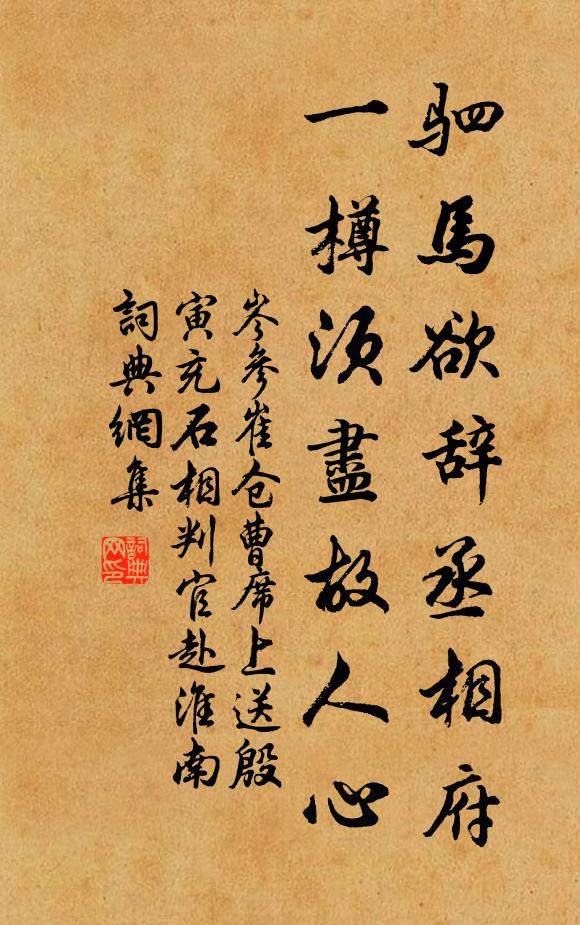 驷馬欲辞丞相府
一樽须盡故人心
岑參崔仓曹席上送殷
寅充石相判官赴淮南
詞典網集
詞典
网印